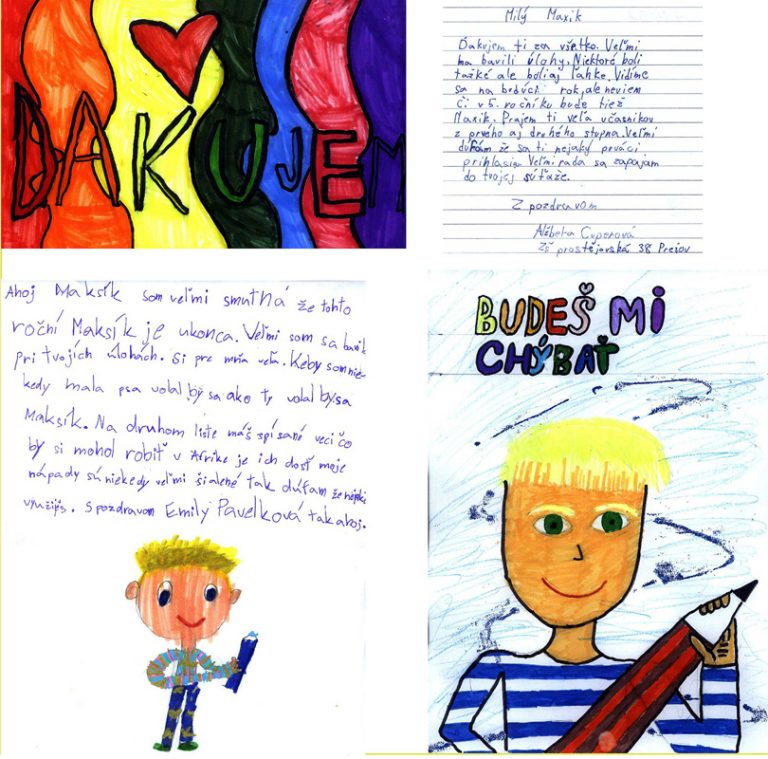 ĎAKUJEM
Milý Maxik
Ďakujem ti za všetko. Veľmi
ma bavili úlohy. Niektoré boli
ťažké ale boli aj ľahke. Vidíme
sa na budúci rok, ale neviem
či v 5. ročníku bude tiež
Maxik. Prajem ti veľa učasnikov
z prvého aj druhého stupna. Veľmi
dúfam že sa ti nejaký prváci
prihlasia. Veľmi rada sa zapájam
do tvojej súťaže.
S pozdravom
Alžbeta Cuperová
ZŠ prostějovská 38 Prešov
Ahoj Maksík som veľmi smutná že tohto
roční Maksík je ukonca. Veľmi som sa bavila
pri tvojich úlohách. Si pre mňa veľa. Keby som nie-
kedy mala psa volal by sa ako ty volal by sa
Maksík. Na druhom liste máš spísané veci čo
by si mohol robiť v Afrike je ich dosť moje
nápady sú niekedy veľmi šialené tak dúfam že
využiješ. S pozdravom Emily Pavelková tak ahoj.
BUDEŠ MI
CHÝBAŤ